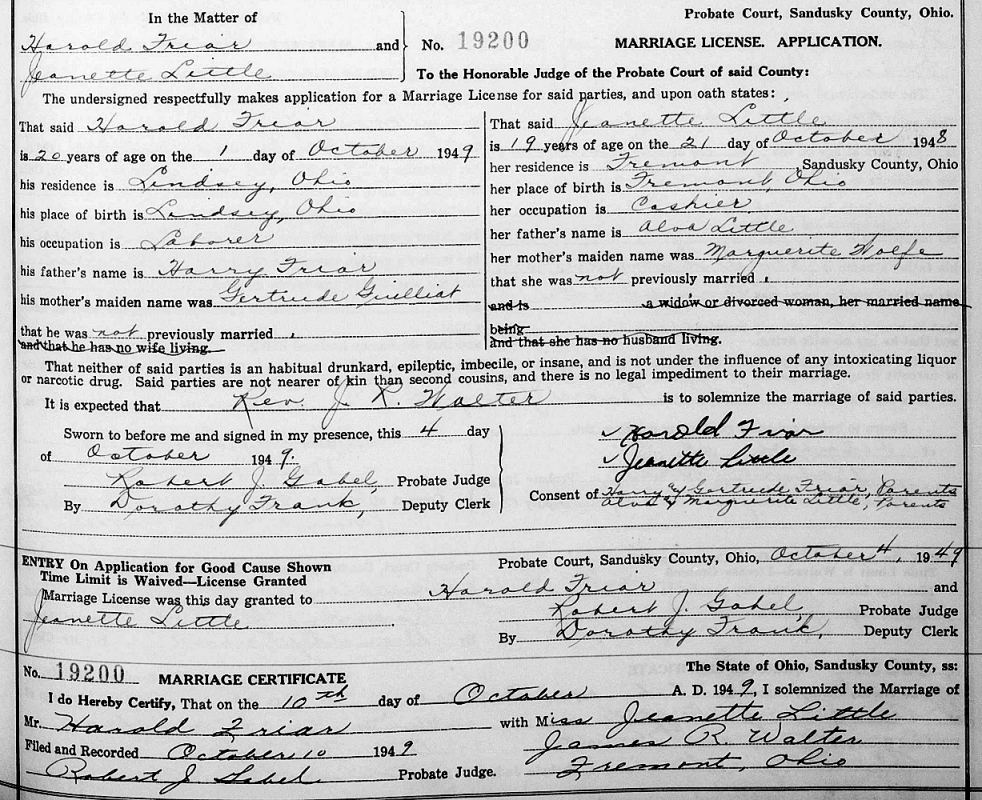 In the Matter of
Probate Court, Sandusky County, Ohio.
Harold Friar and
No. 19200 MARRIAGE LICENSE. APPLICATION.
Jeanette Little
To the Honorable Judge of the Probate Court of said County:
The undersigned respectfully makes application for a Marriage License for said parties, and upon oath states:
That said Harold Friar
is 20 years of age on the 1 day of October 1949
his residence is Lindsey, Ohio
his place of birth is Lindsey, Ohio
his occupation is Laborer
his father's name is Harry Friar
his mother's maiden name was Gertrude Guilliat
that he was not previously married
and that he has no wife living.
That said Jeanette Little
is 19 years of age on the 21 day of October 1948
her residence is Fremont, Sandusky County, Ohio
her place of birth is Fremont, Ohio
her occupation is Cashier
her father's name is Alva Little
her mother's maiden name was Marguerite Wolfe
that she was not previously married
and is a widow or divorced woman, her married name
being
and that she has no husband living.
That neither of said parties is an habitual drunkard, epileptic, imbecile, or insane, and is not under the influence of any intoxicating liquor
or narcotic drug. Said parties are not nearer of kin than second cousins, and there is no legal impediment to their marriage.
It is expected that Rev. J. R. Walter is to solemnize the marriage of said parties.
Sworn to before me and signed in my presence, this 4 day
of October 1949.
Robert J. Gabel, Probate Judge
By Dorothy Frank, Deputy Clerk
Harold Friar
Jeanette Little
Consent of Harry & Gertrude Friar, Parents
Alva & Marguerite Little, Parents
ENTRY On Application for Good Cause Shown
Time Limit is Waived—License Granted
Probate Court, Sandusky County, Ohio, October 4, 1949
Marriage License was this day granted to Harold Friar and
Jeanette Little
Robert J. Gabel, Probate Judge
By Dorothy Frank, Deputy Clerk
No. 19200 MARRIAGE CERTIFICATE
The State of Ohio, Sandusky County, ss:
I do Hereby Certify, That on the 10th day of October A. D. 1949, I solemnized the Marriage of
Mr. Harold Friar with Miss Jeanette Little
Filed and Recorded October 10 1949
James R. Walter
Robert J Gabel Probate Judge.
Fremont, Ohio